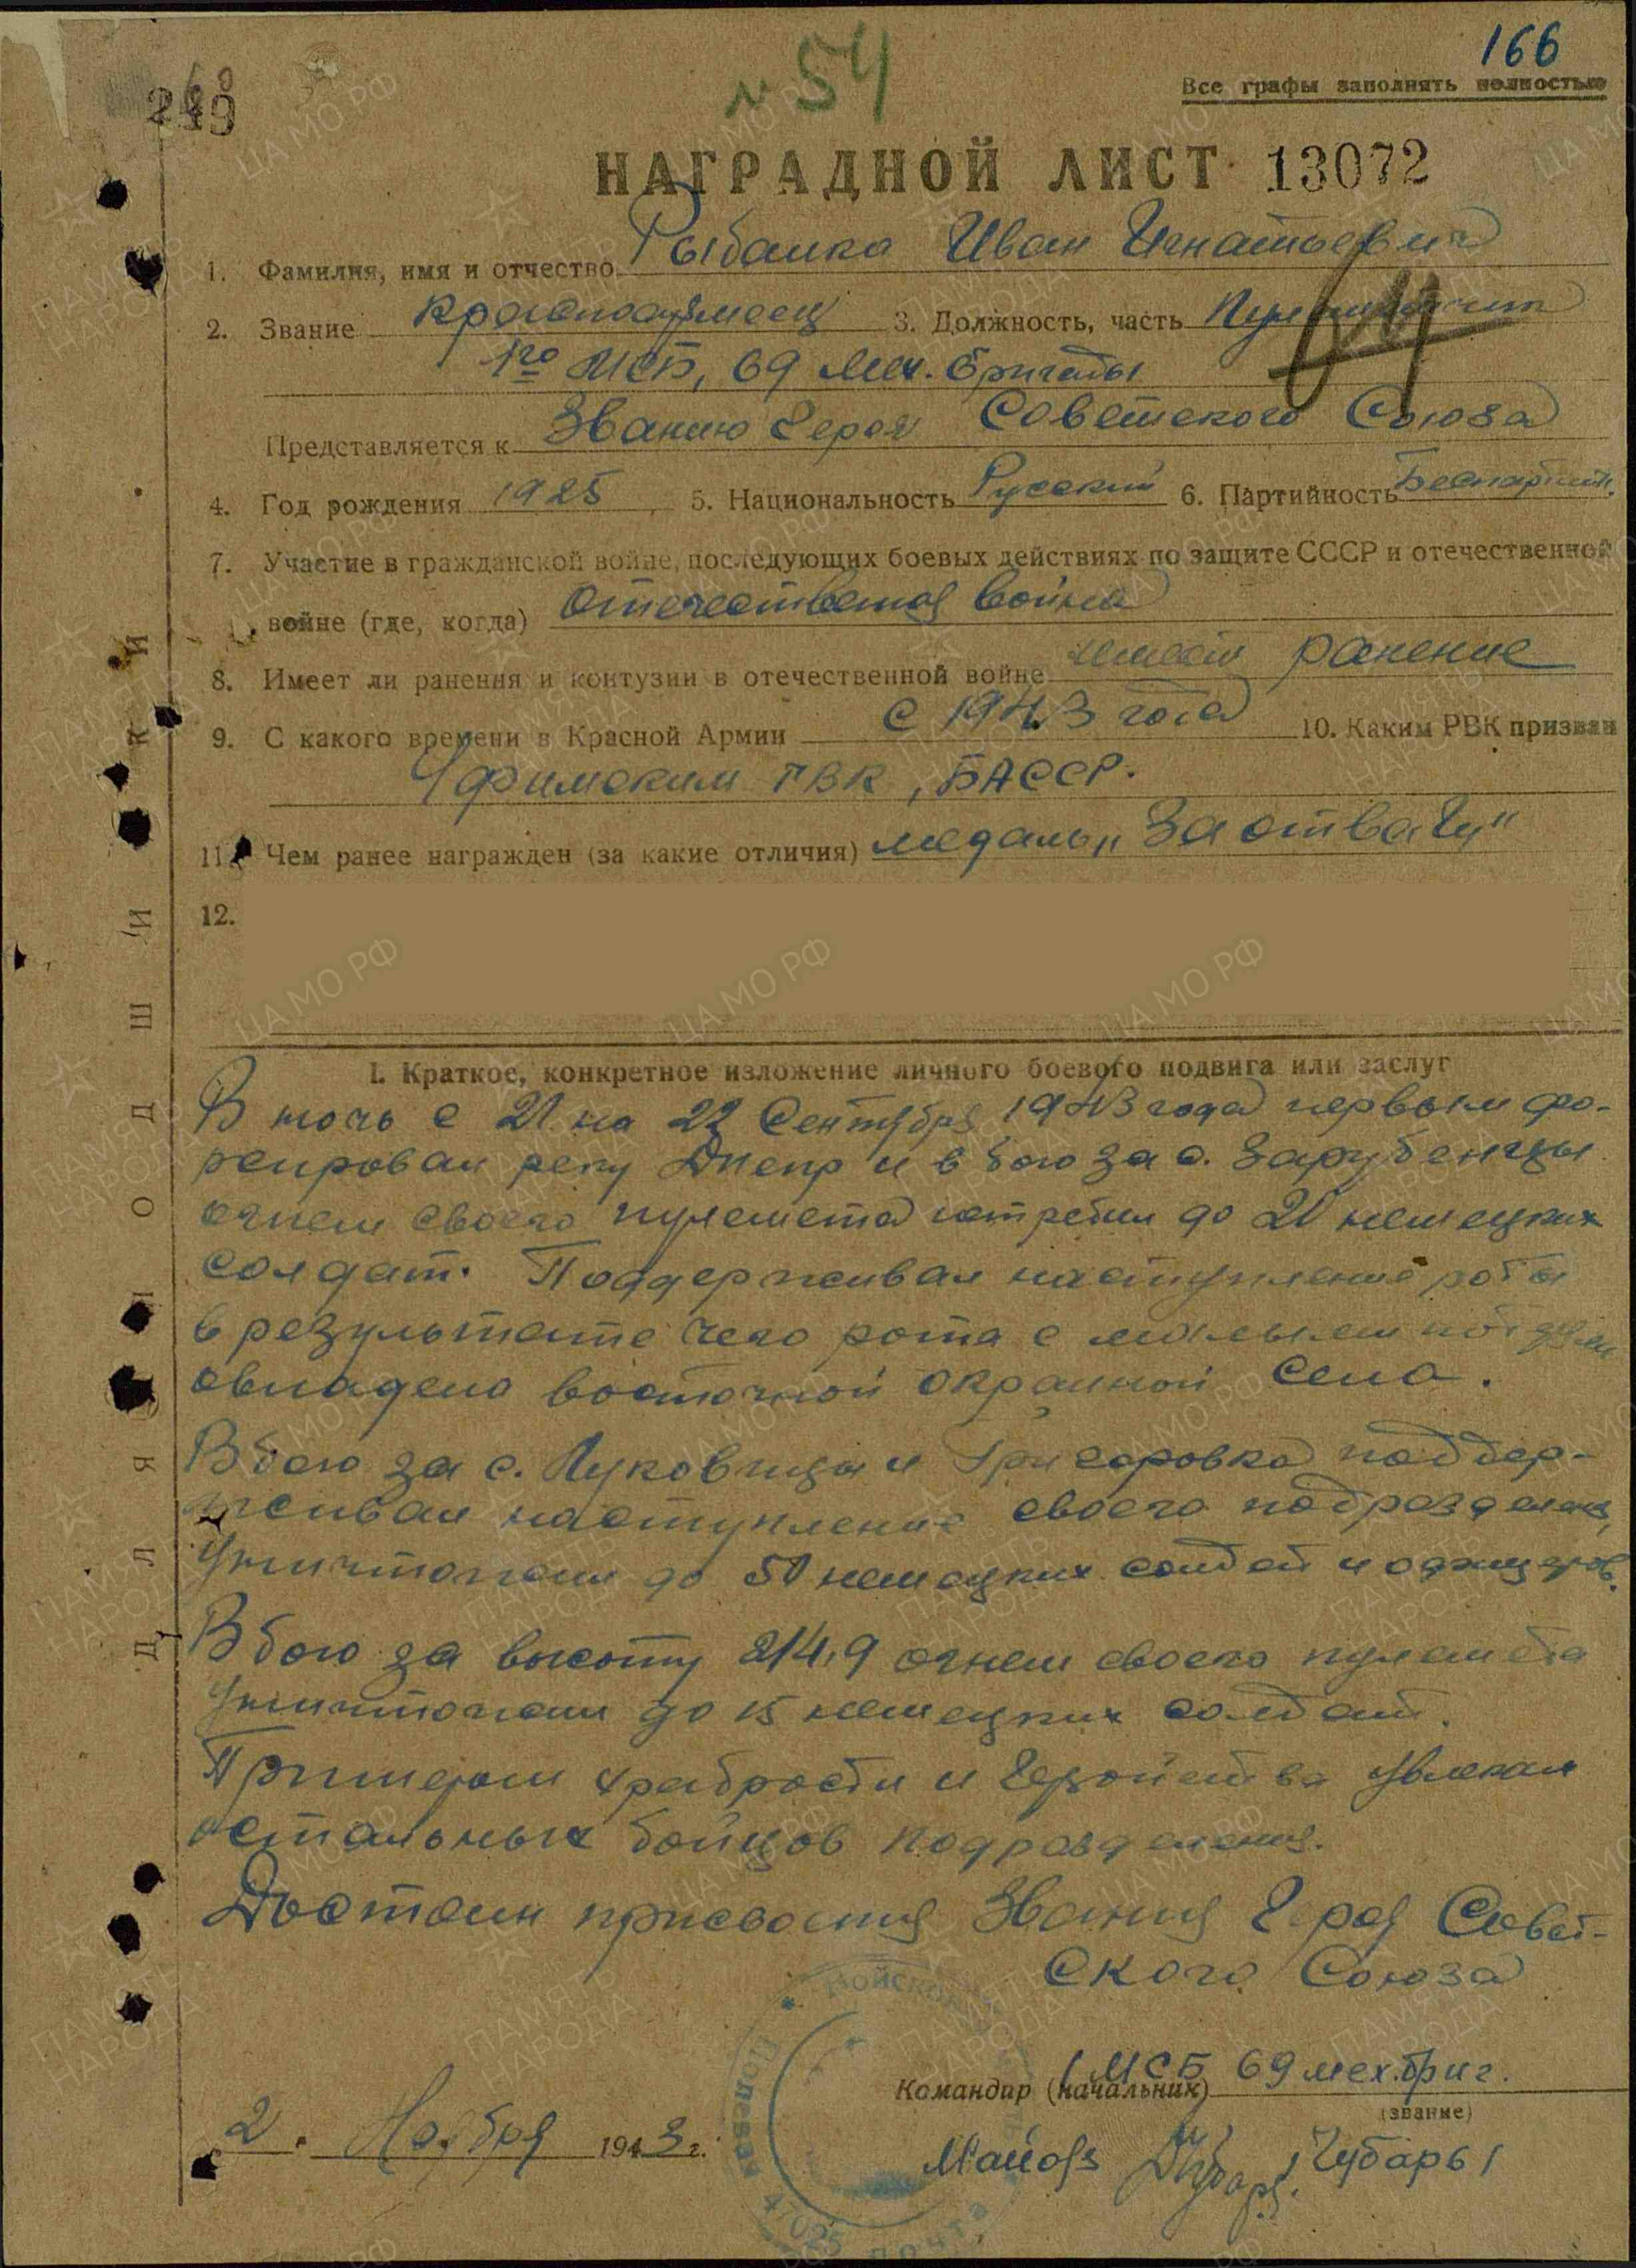 166
Все графы заполнять полностью
№ 54
НАГРАДНОЙ ЛИСТ 13072
1. Фамилия, имя и отчество Рыбалка Иван Игнатьевич
2. Звание Красноармеец 3. Должность, часть Пулеметчик
1го МСБ, 69 Мех. бригады
Представляется к Званию Героя Советского Союза
4. Год рождения 1925 5. Национальность Русский 6. Партийность Беспартийн.
7. Участие в гражданской войне, последующих боевых действиях по защите СССР и отечественной
войне (где, когда) Отечественная война
8. Имеет ли ранения и контузии в отечественной войне имеет ранение
9. С какого времени в Красной Армии с 1943 года 10. Каким РВК призван
Уфимским ГВК, БАССР.
11. Чем ранее награжден (за какие отличия) медаль „За отвагу"
12.
I. Краткое, конкретное изложение личного боевого подвига или заслуг
В ночь с 21 на 22 Сентября 1943 года первым фо-
рсировал реку Днепр и в бою за с. Зарубенцы
огнем своего пулемета истребил до 20 немецких
солдат. Поддерживал наступление роты
в результате чего рота с малыми потерями
овладела восточной окраиной села.
В бою за с. Луковицы и Григоровка поддер-
живал наступление своего подразделения,
уничтожил до 50 немецких солдат и офицеров.
В бою за высоту 214,9 огнем своего пулемета
уничтожил до 15 немецких солдат.
Примером храбрости и геройства увлекал
остальных бойцов подразделения.
Достоин присвоения Звания Героя Совет-
ского Союза
Командир (начальник) 1 МСБ 69 мех.бриг.
(звание)
2. Ноября 1943 г.
Майор /Чубарь/
ДЛЯ ПОДШИВКИ
Полевая
почта
ПАМЯТЬ НАРОДА
ЦА МО РФ